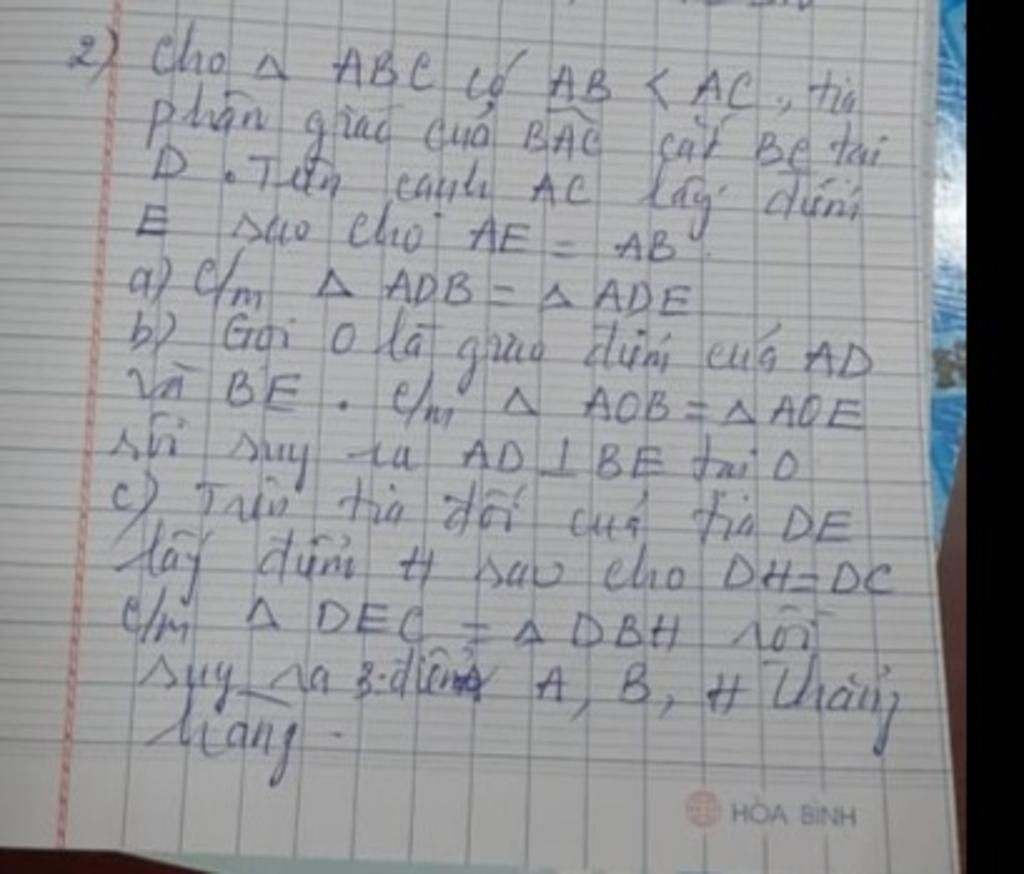 2) Cho Δ ABC có AB < AC, tia
phân giác của BAC cắt BC tại
D. Trên cạnh AC lấy điểm
E sao cho AE = AB.
a) C/m Δ ADB = Δ ADE
b) Gọi O là giao điểm của AD
Và BE. C/m Δ AOB = Δ AOE
rồi suy ra AD ⊥ BE tại O
c) Trên tia đối của tia DE
lấy điểm H sao cho DH = DC
C/m Δ DEC = Δ DBH rồi
suy ra 3 điểm A, B, H thẳng
hàng.
HÒA BÌNH